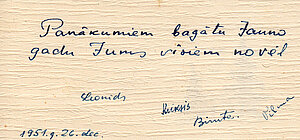 Panākumiem bagātu Jauno
gadu Jums visiem novēl
Leonids
Kuksis
Birute.
Vilma
1951.g. 26. dec.